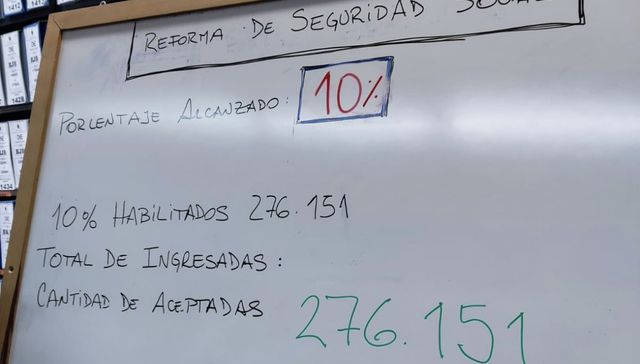 REFORMA DE SEGURIDAD SOCIAL
PORCENTAJE ALCANZADO: 10%
10% HABILITADOS 276.151
TOTAL DE INGRESADAS:
CANTIDAD DE ACEPTADAS 276.151